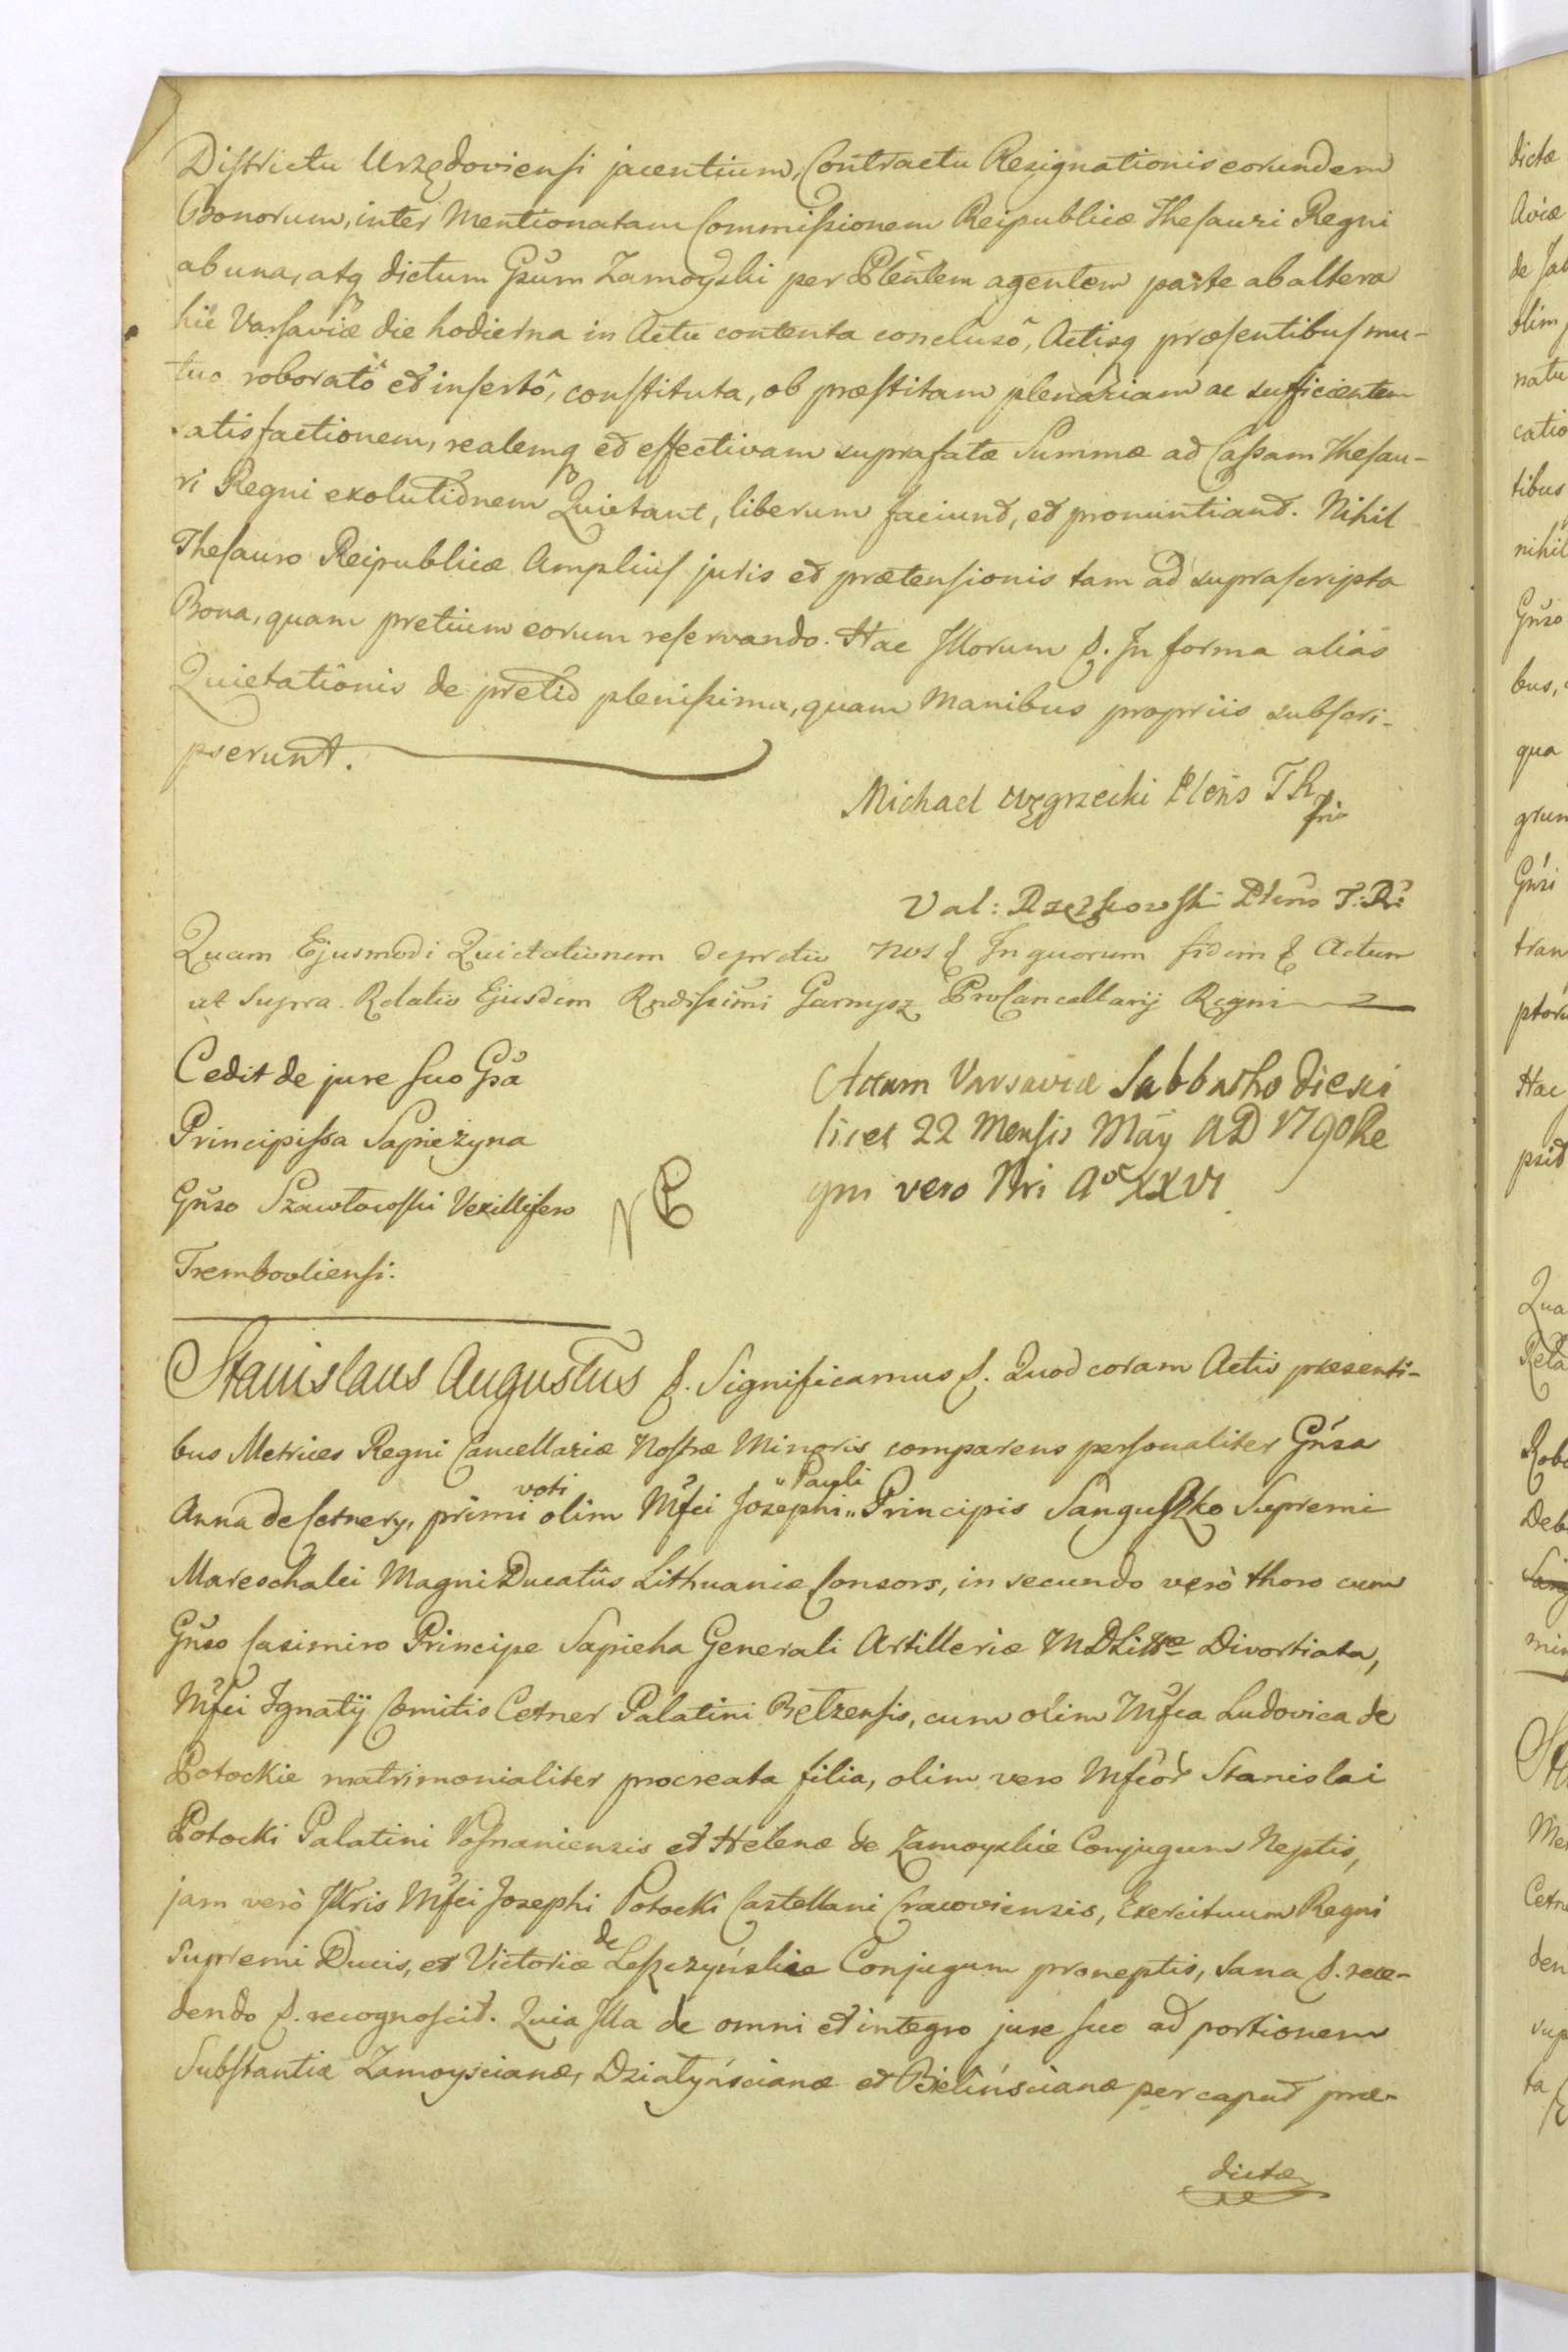 Districtu Urzędoviensi jacentium, Contractu Resignationis eorundem
Bonorum, inter Mentionatam Commissionem Reipublicæ Thesauri Regni
ab una, atq dictum Gsũm Zamoyski per Pleñtem agentem parte ab altera
hic Varsaviæ die hodierna in Actu contenta conclusô, Actisq præsentibus mu-
tuo roboratô et insertô, constituta, ob præstitam plenariam ac sufficientem
satisfactionem, realemq et effectivam suprafatæ Summæ ad Cassam Thesau-
ri Regni exolutionem Quietant, liberum faciunt, et pronuntiant. Nihil
Thesauro Reipublicæ Amplius juris et prætensionis tam ad suprascripta
Bona, quam pretium eorum reservando. Hac Illorum &. In forma aliàs
Quietationis de pretio plenissima, quam Manibus propriis subscri-
pserunt.
Michael Węgrzecki Pleñs T R
Val: Rzeszkowski Pleñs T: R:
Quam Ejusmodi Quietationem de pretio Nos & In quorum fidem & Actum
ut Supra. Relatio Ejusdem Rndissimi Garnysz ProCancellarij Regni
Cedit de jure suo Gsa
Principissa Sapieżyna
Gñso Szawłowski Vexillifero
Trembovliensi.
Actum Varsaviæ Sabbatho die sci
licet 22 Mensis Maÿ AD 1790 Re
gni vero Nri Aº XXVI
Stanislaus Augustus &. Significamus &. Quod coram Actis præsenti-
bus Metrices Regni Cancellariæ Nostræ Minoris comparens personaliter Gñsa
Anna de Cetnery, primi voti olim Mfci Josephi „Pauli„ Principis Sanguszko Supremi
Mareschalci Magni Ducatûs Lithuaniæ Consors, in secundo verò thoro cum
Gñso Casimiro Principe Sapieha Generali Artilleriæ MDLittæ Divortiata,
Mfci Ignatij Comitis Cetner Palatini Bełzensis, cum olim Mfca Ludovica de
Potockie matrimonialiter procreata filia, olim vero Mfcor Stanislai
Potocki Palatini Posnaniensis et Helenæ de Zamoyskie Conjugum Neptis,
jam verò Illris Mfci Josephi Potocki Castellani Cracoviensis, Exercituum Regni
Supremi Ducis, et Victoriæ de Leszczyńskie Conjugum proneptis, sana &. rece-
dendo &. recognoscit. Quia Illa de omni et integro jure suo ad portionem
Substantiæ Zamoyscianæ, Działyńscianæ et Bielińscianæ per caput præ-
dictæ